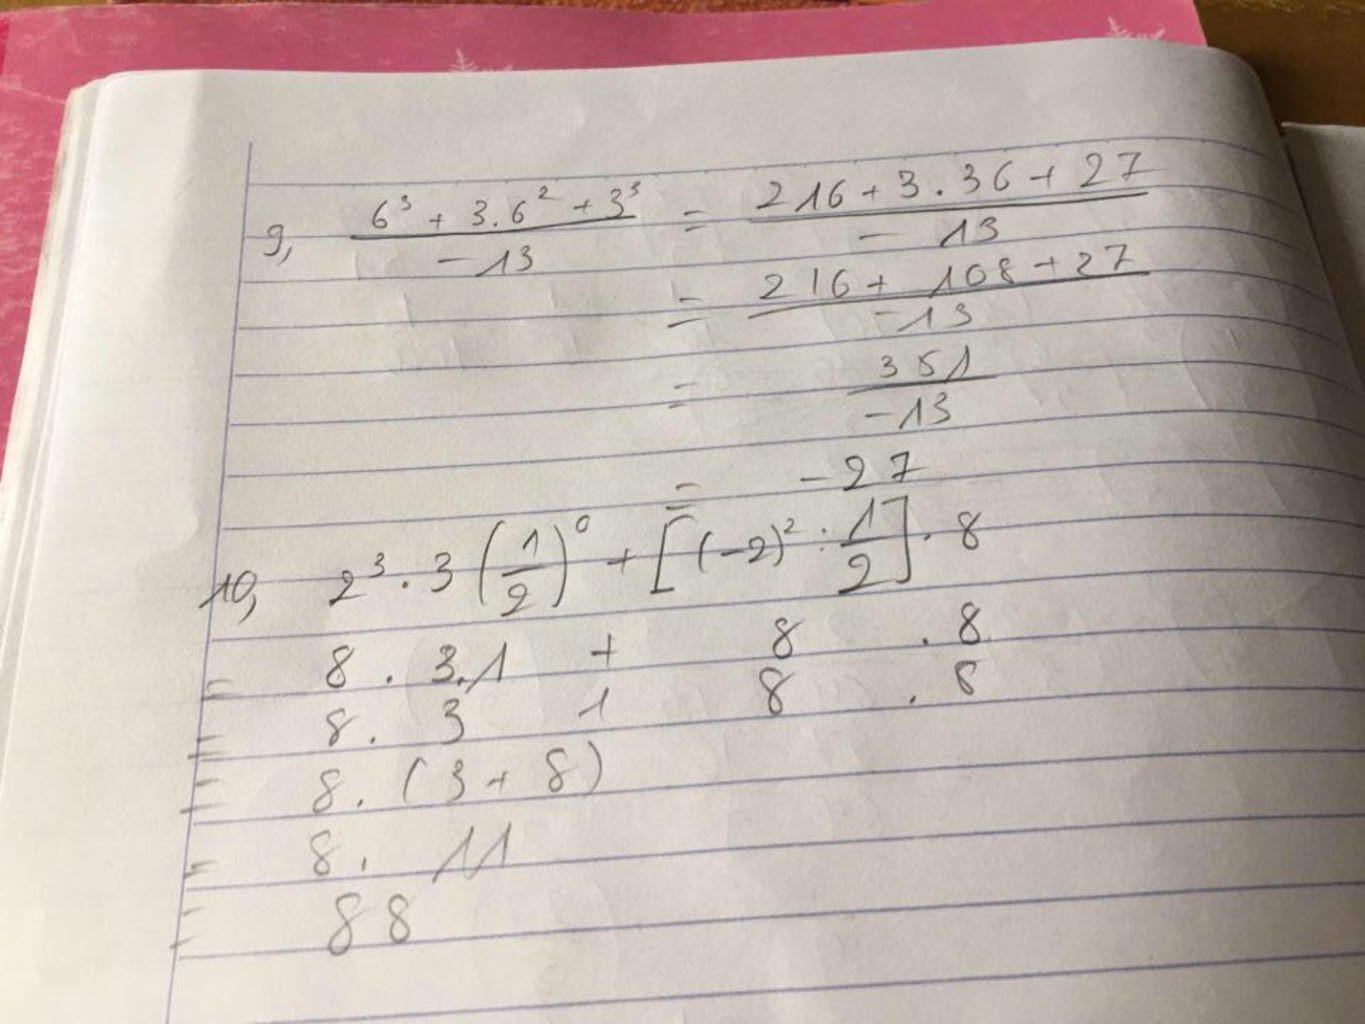 9, \frac{6^3 + 3.6^2 + 3^3}{-13} = \frac{216 + 3.36 + 27}{-13}
= \frac{216 + 108 + 27}{-13}
= \frac{351}{-13}
= -27
10, 2^3 . 3 (\frac{1}{2})^0 + [(-2)^2 : \frac{1}{2}] . 8
= 8 . 3.1 + 8 . 8
= 8 . 3 1 8 . 8
= 8 . (3 + 8)
= 8 . 11
= 88